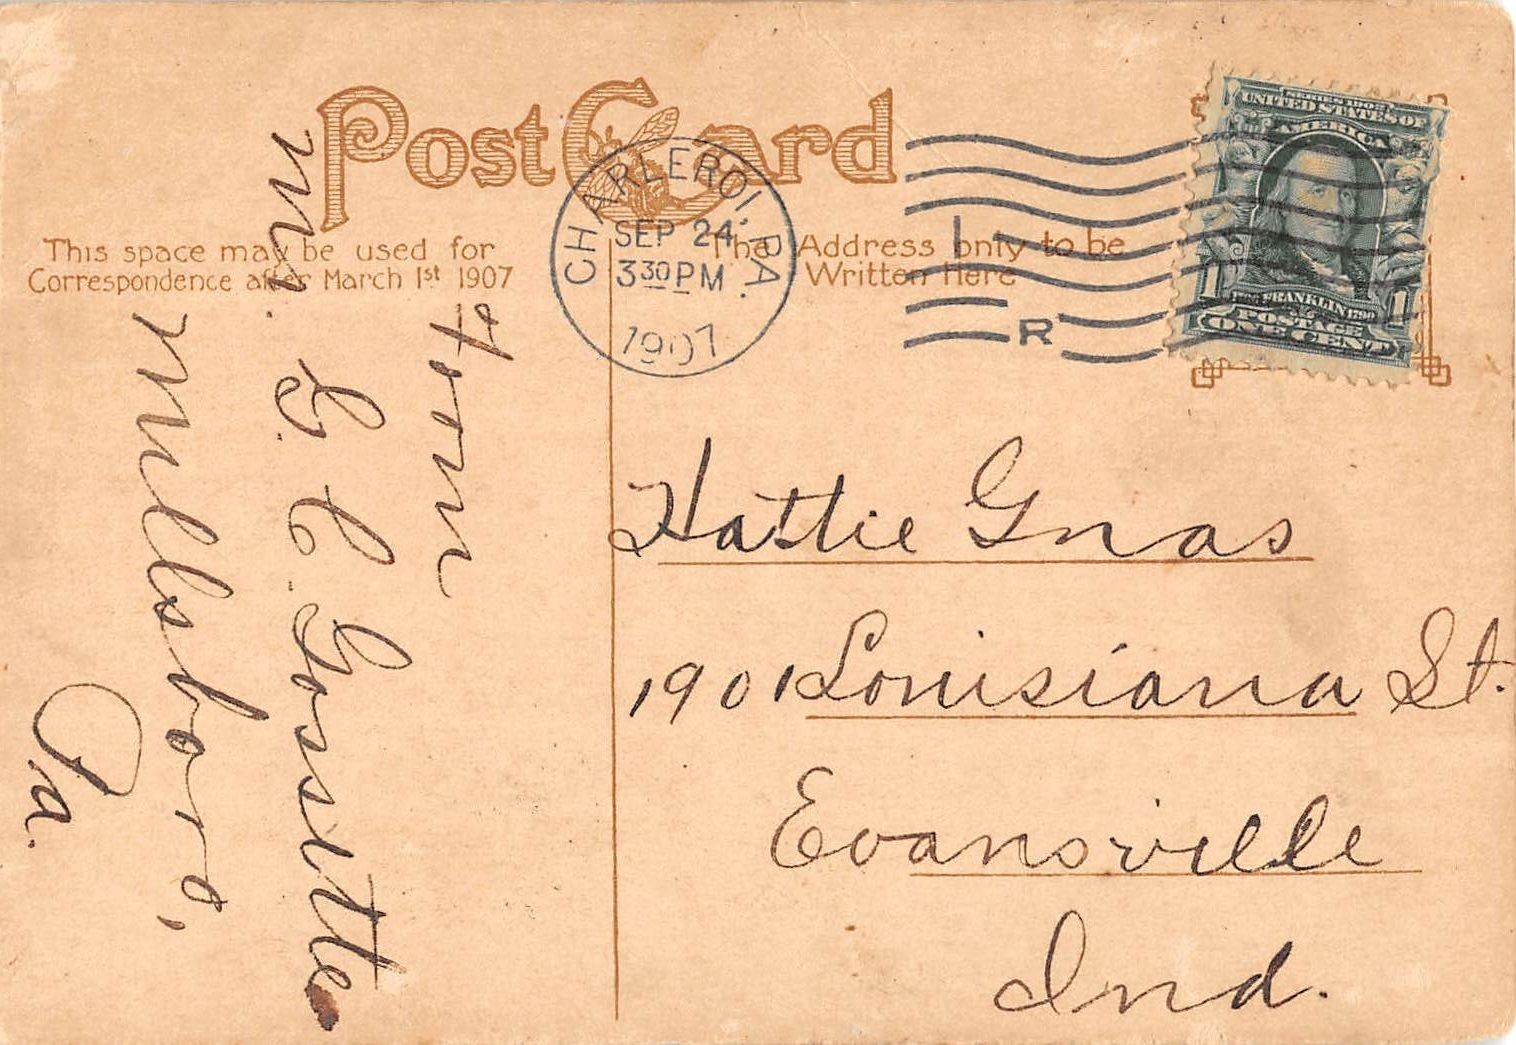 Post Card
This space may be used for
Correspondence after March 1st 1907
The Address only to be
Written Here
CHARLEROI, PA.
SEP 24
3 30 PM
1907
R
SERIES 1902
UNITED STATES OF
AMERICA
FRANKLIN 1790
POSTAGE
1 1
ONE CENT
From
Mr. L. C. Gossette
Millsboro,
Pa.
Hattie Gnas
1901 Louisiana St.
Evansville
Ind.